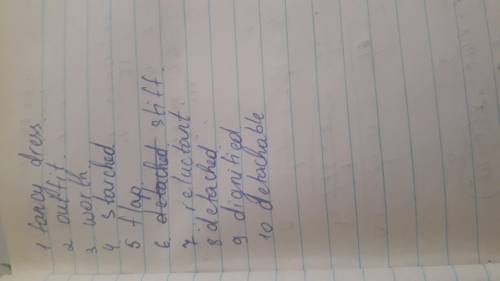 1 fancy dress
2 outfit
3 worth
4. starched
5 flap
6. detached stiff.
7 reluctant
8 detached
9 dignified
10 detachable